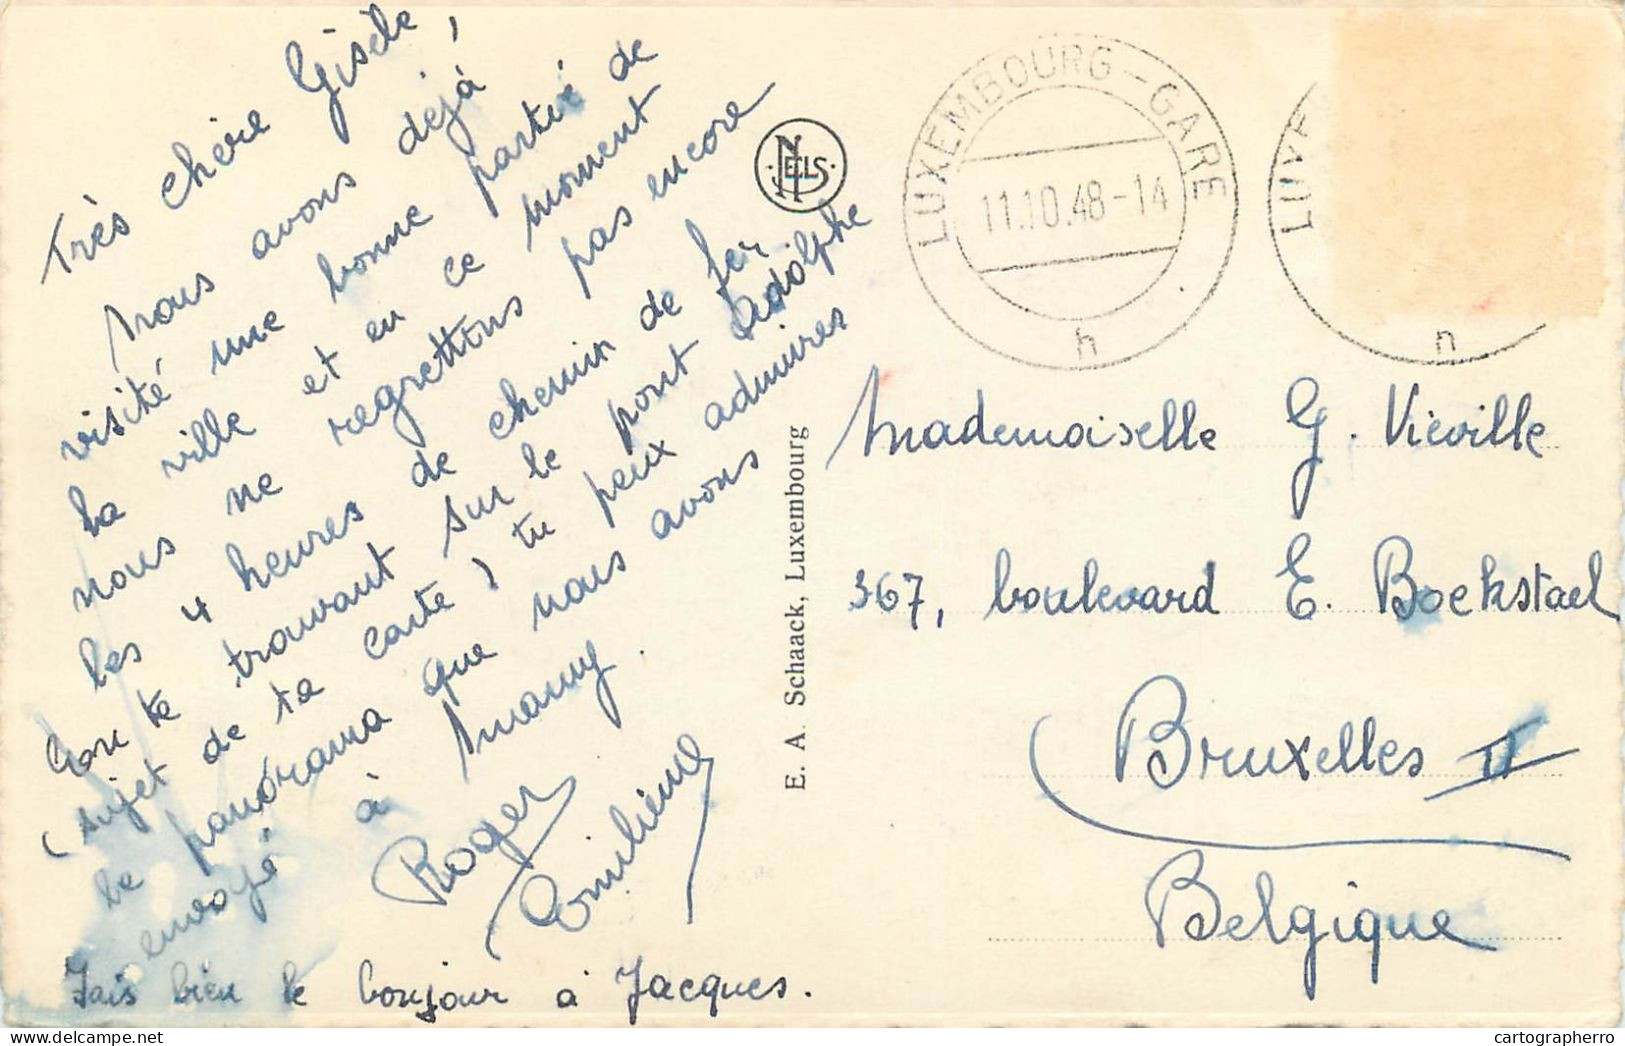 Très chère Gisèle,
Nous avons déjà
visité une bonne partie de
la ville et en ce moment
nous ne regrettons pas encore
les 4 heures de chemin de fer
te trouvant sur le pont Adolphe
(sujet de ta carte) tu peux admirer
le panorama que nous avons
envoyé à Mamy.
Roger
Emilienne
Fais bien le bonjour à Jacques.
NELS
E. A. Schaack, Luxembourg
LUXEMBOURG-GARE
11.10.48-14
h
LUXE
Mademoiselle G. Viéville
367, boulevard E. Bockstael
Bruxelles II
Belgique
cartographerro